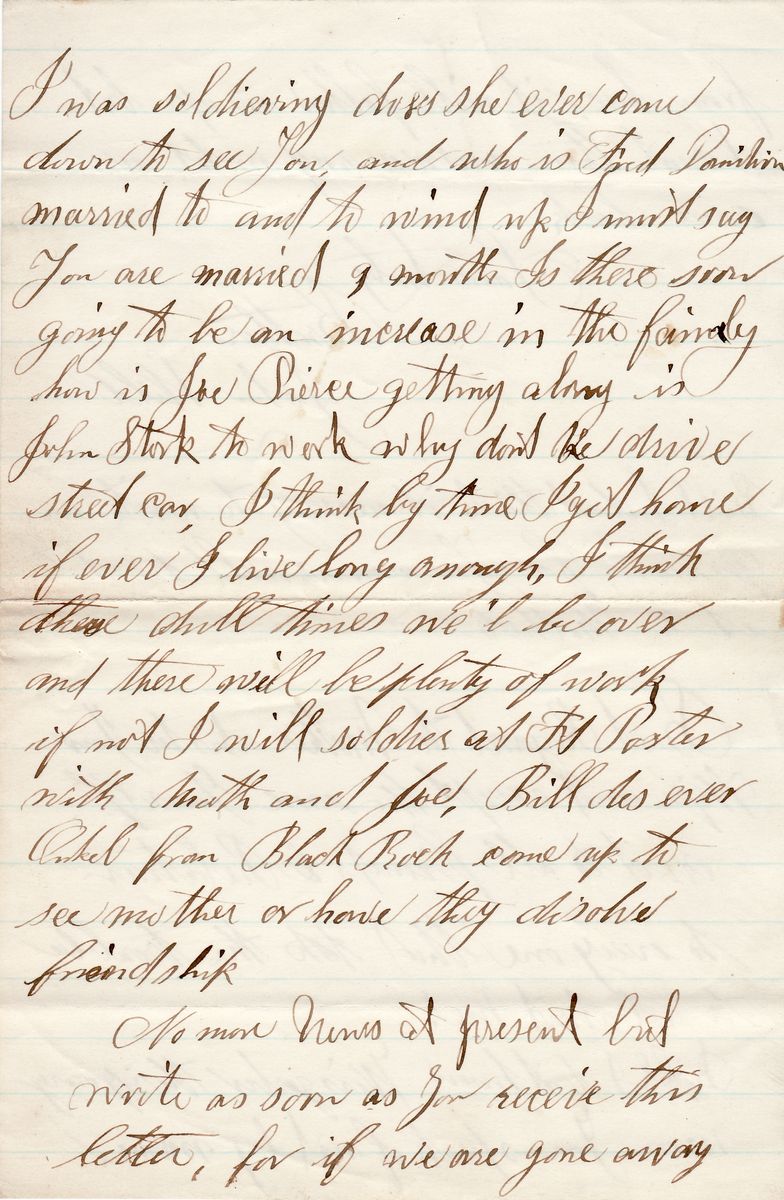 I was soldiering does she ever come
down to see You, and who is Fred
married to and to wind up I must say
You are married 9 month Is there soon
going to be an increase in the family
how is Joe Pierce getting along is
John Stork to work why dont he drive
street car, I think by time I get home
if ever I live long anough, I think
these dull times we'l be over
and there will be plenty of work
if not I will soldier at Ft Porter
with Math and Joe, Bill des ever
Onkel from Black Rock come up to
see mother or have they disolve
friendship
No more News at present but
write as soon as You receive this
letter, for if we are gone away